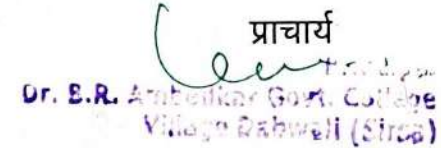 प्राचार्य
Principal
Dr. B.R. Ambedkar Govt. College
Village Dabwali (Sirsa)